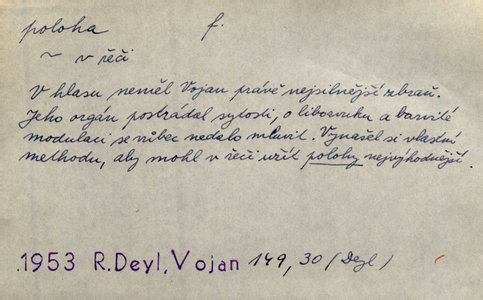 poloha f.
~ v řeči
V hlasu neměl Vojan právě nejsilnější zbraň.
Jeho orgán postrádal sytosti, o libozvuku a barvité
modulaci se vůbec nedalo mluvit. Vynašel si vlastní
methodu, aby mohl v řeči užít polohy nejvýhodnější.
.1953 R.Deyl, Vojan 149, 30 (Deyl)